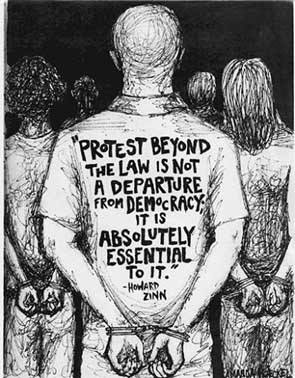 "PROTEST BEYOND
THE LAW IS NOT
A DEPARTURE
FROM DEMOCRACY;
IT IS
ABSOLUTELY
ESSENTIAL
TO IT."
-HOWARD
ZINN